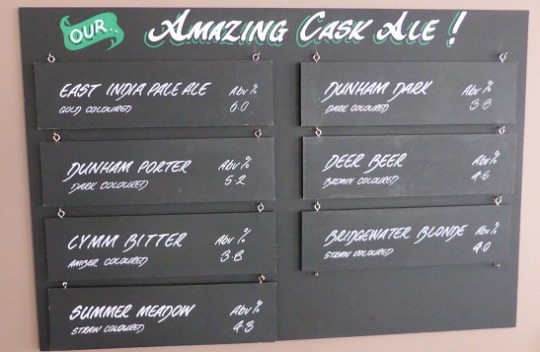 OUR.. AMAZING CASK ALE !
EAST INDIA PALE ALE Abv %
GOLD COLOURED 6.0
DUNHAM PORTER Abv %
DARK COLOURED 5.2
CYMM BITTER Abv %
AMBER COLOURED 3.8
SUMMER MEADOW Abv %
STRAW COLOURED 4.3
DUNHAM DARK Abv %
DARK COLOURED 3.8
DEER BEER Abv %
BROWN COLOURED 4.5
BRIDGEWATER BLONDE Abv %
STRAW COLOURED 4.0